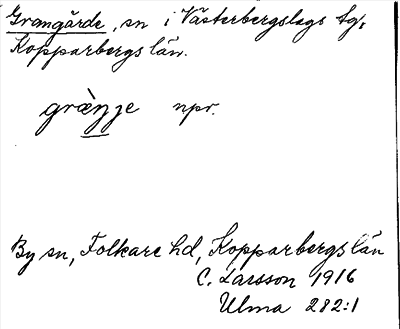 Grangärde, sn i Västerbergslags tg,
Kopparbergs län.
græ̀ŋje npr.
By sn, Folkare hd, Kopparbergs län
C. Larsson 1916
Ulma 282:1